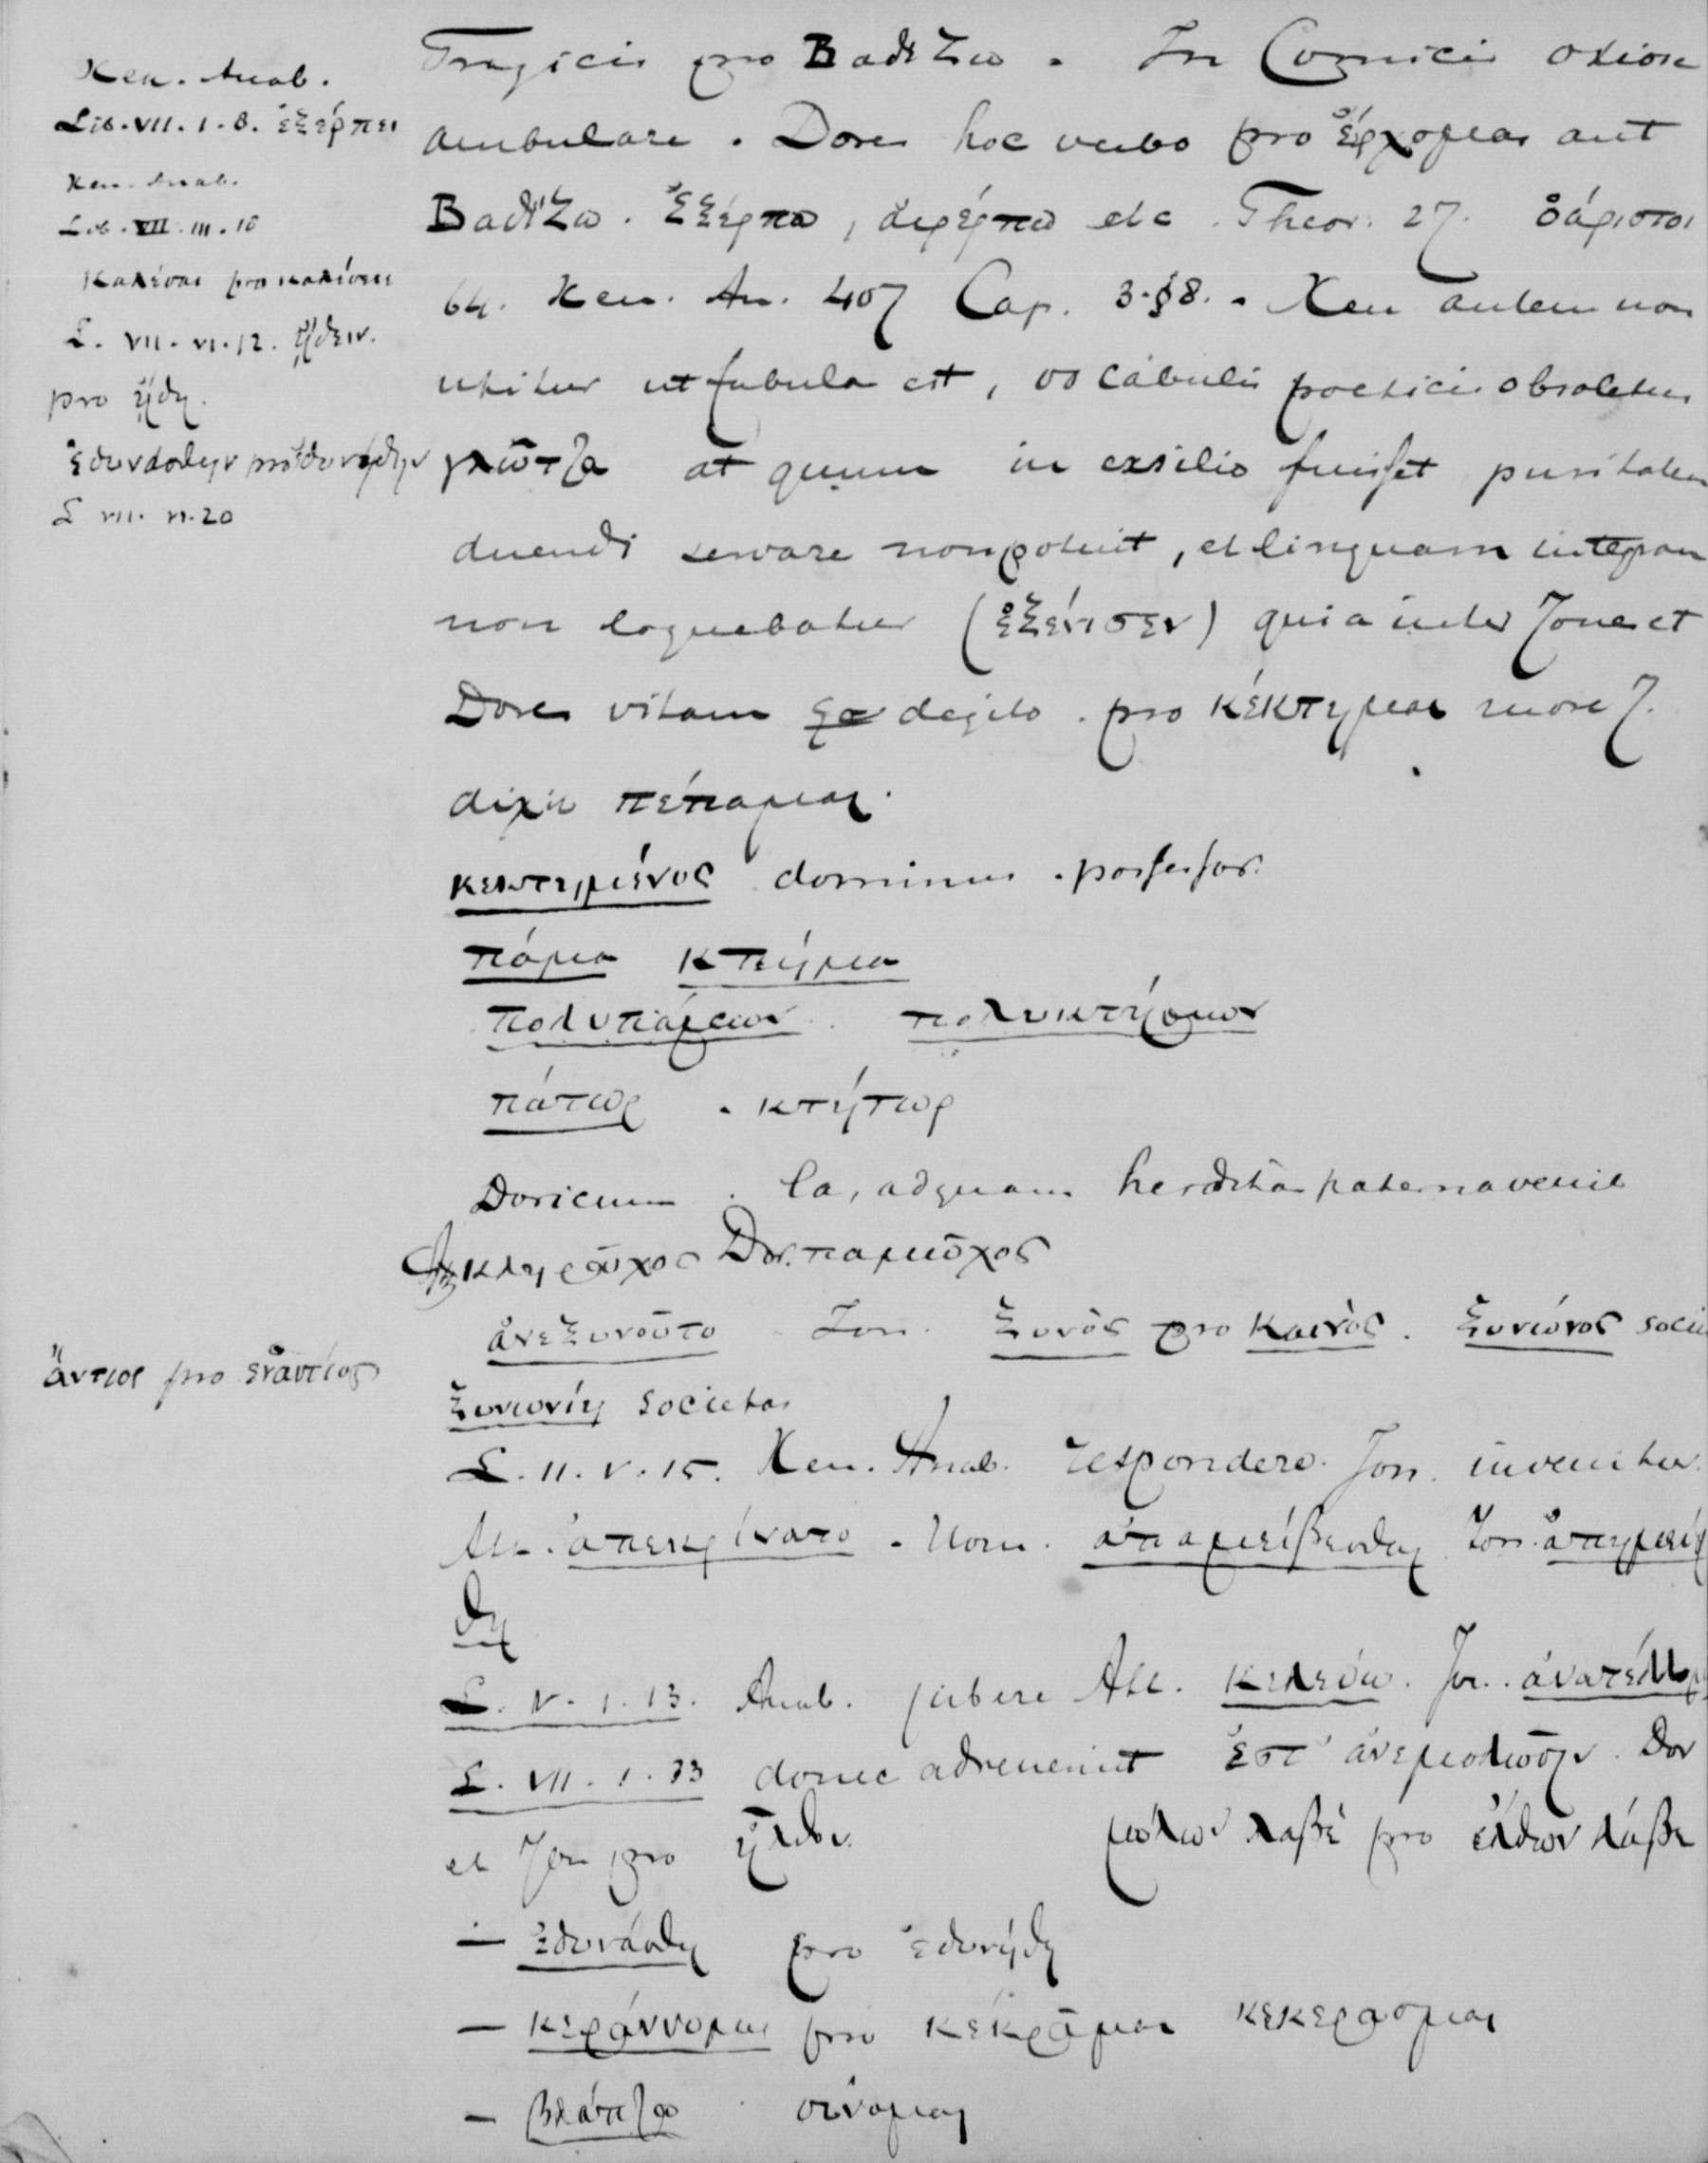 Xen. Anab.
Lib. VII. 1. 8. ἐξέρπει
Xen. Anab.
Lib. VII. III. 15
καλέσαι pro καλέσειν
L. VII. VI. 12. ᾔδειν.
pro ᾔδη.
ἐδυνάσθην pro ἐδυνήθην
L VII. VI. 20
Tragicis pro Βαδίζω. In Comicis otiose
ambulare. Dores hoc verbo pro ἔρχομαι aut
Βαδίζω. Ἐξέρπω, etc. Theor. 27. ὤριστοι
64. Xen. An. 407 Cap. 3. § 8. Xen autem non
utitur ut fabula est, vocabulis poeticis obsoletis
γλῶττα at quum in exsilio fuisset puritatem
dicendi servare non potuit, et linguam integram
non loquebatur (ἐξένισεν) quia inter Iones et
Dores vitam degit. pro κέκτημαι more I.
dixit πέπαμαι.
κεκτημένος dominus. possessor.
πάμα κτῆμα
πολυπάμων πολυκτήμων
πάτωρ. κτήτωρ
Doricum. Ea, ad quam hereditas paterna venit
κληροῦχος Dor. παμοῦχος
ἀνεξυνοῦτο Ion. ξυνὸς pro κοινὸς. ξυνώνος
ἄντιος pro ἐναντίος
ξυνωνίη societas
L. II. V. 15. Xen. Anab. respondere. Ion. invenitur.
Att. ἀπεκρίνατο. Hom. ἀπαμείβεσθαι Ion. ἀπημείφ
θη
L. V. 1. 13. Anab. jubere Att. κελεύω. Ion.
L. VII. 1. 33 donec advenerint ἔστ' ἂν μόλωσιν. Dor
et Ion pro ἦλθον. μολὼν λαβέ pro ἐλθὼν λάβε
— ἐδυνάσθη pro ἐδυνήθη
— κεράννυμαι pro κέκραμαι κεκέρασμαι
— βλάπτω σίνομαι